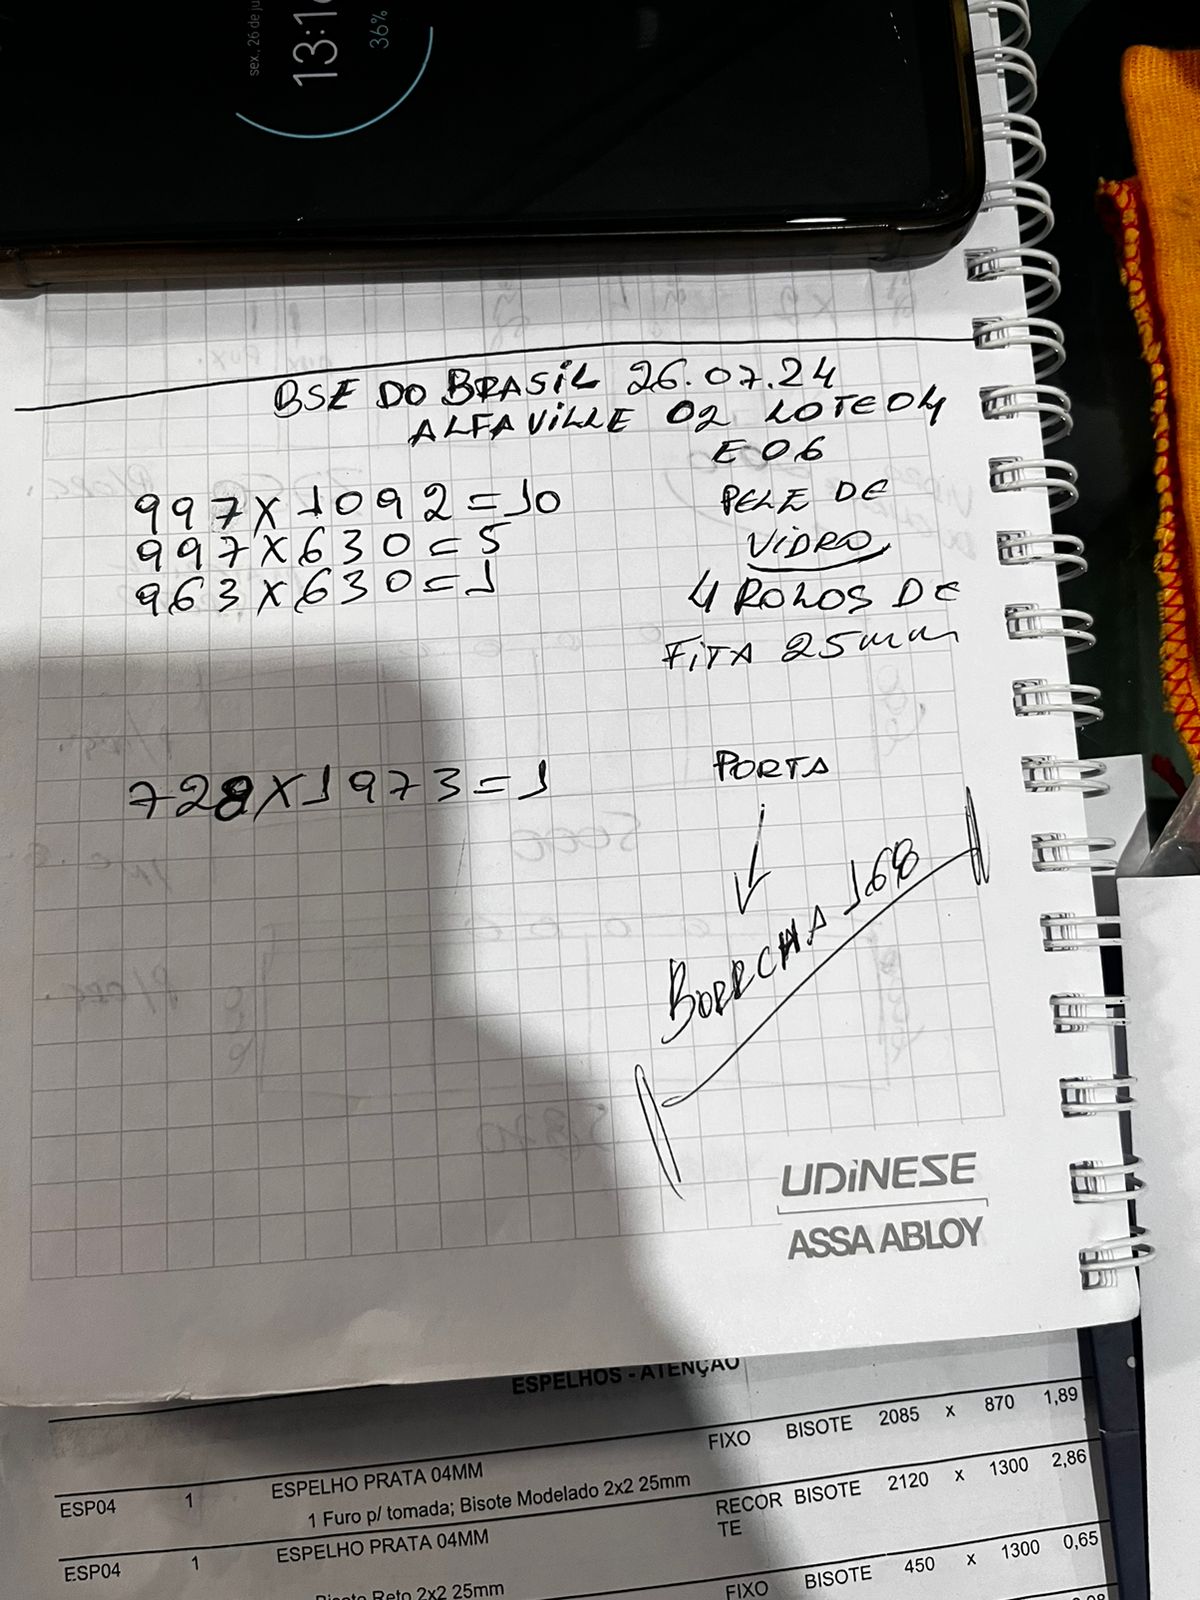 sex., 26 de ju
13:1
36%
BSE DO BRASIL 26.07.24
ALFAVILLE 02 LOTE 04
E 06
997X1092=10
PELE DE
997X630=5
VIDRO
963X630=1
4 ROLOS DE
FITA 25mm
PORTA
728X1973=1
BORRCHA 168
UDINESE
ASSA ABLOY
ESPELHOS - ATENÇÃO
FIXO BISOTE 2085 x 870 1,89
ESP04 1 ESPELHO PRATA 04MM
1 Furo p/ tomada; Bisote Modelado 2x2 25mm
RECOR BISOTE 2120 x 1300 2,86
TE
ESP04 1 ESPELHO PRATA 04MM
FIXO BISOTE 450 x 1300 0,65
Reto 2x2 25mm